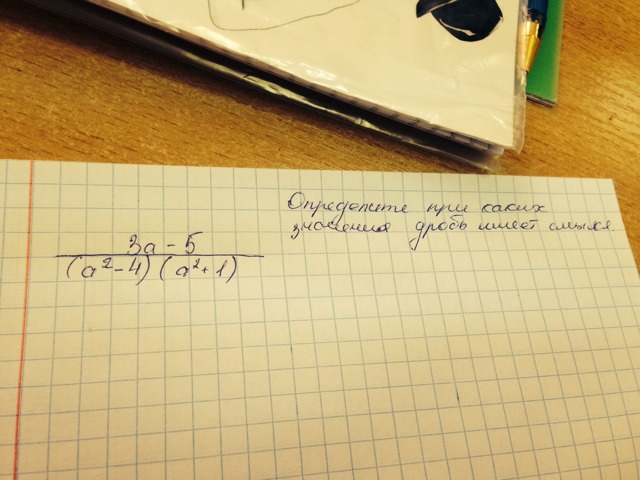 Определите при каких
значения дробь имеет смысл.
3a - 5
(a² - 4) (a² + 1)